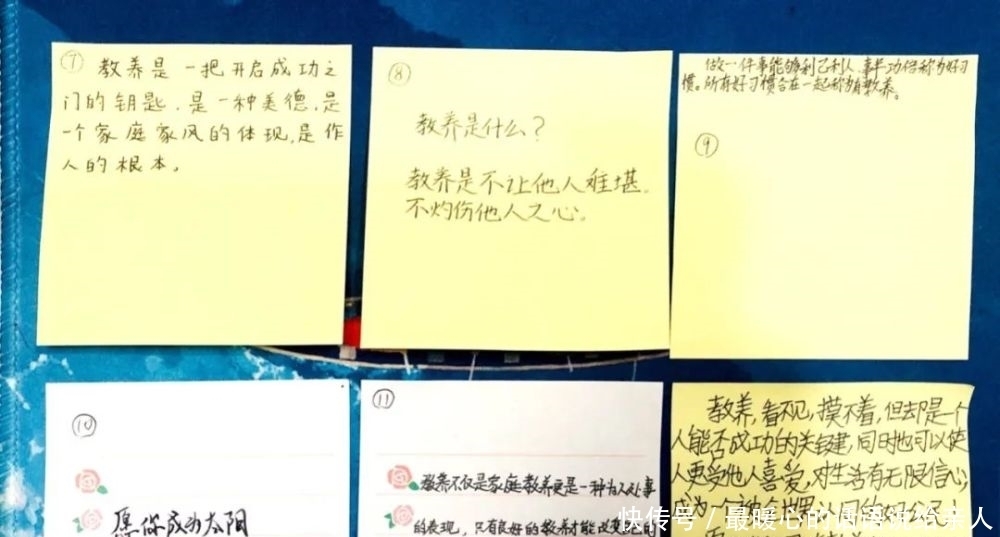 ⑦ 教养是一把开启成功之
门的钥匙.是一种美德,是
一个家庭家风的体现,是作
人的根本。
⑧
教养是什么?
教养是不让他人难堪.
不灼伤他人之心。
做一件事能够利己利人,事半功倍称为好习
惯。所有好习惯合在一起称为教养。
⑨
⑩
愿你成为太阳
⑪
教养不仅是家庭教养更是一种为人处事
的表现,只有良好的教养才能改变
教养,看不见,摸不着,但却是一个
人能否成功的关键,同时也可以使
人更受他人喜爱,对生活有无限信心
成为一个
快传号 / 最暖心的